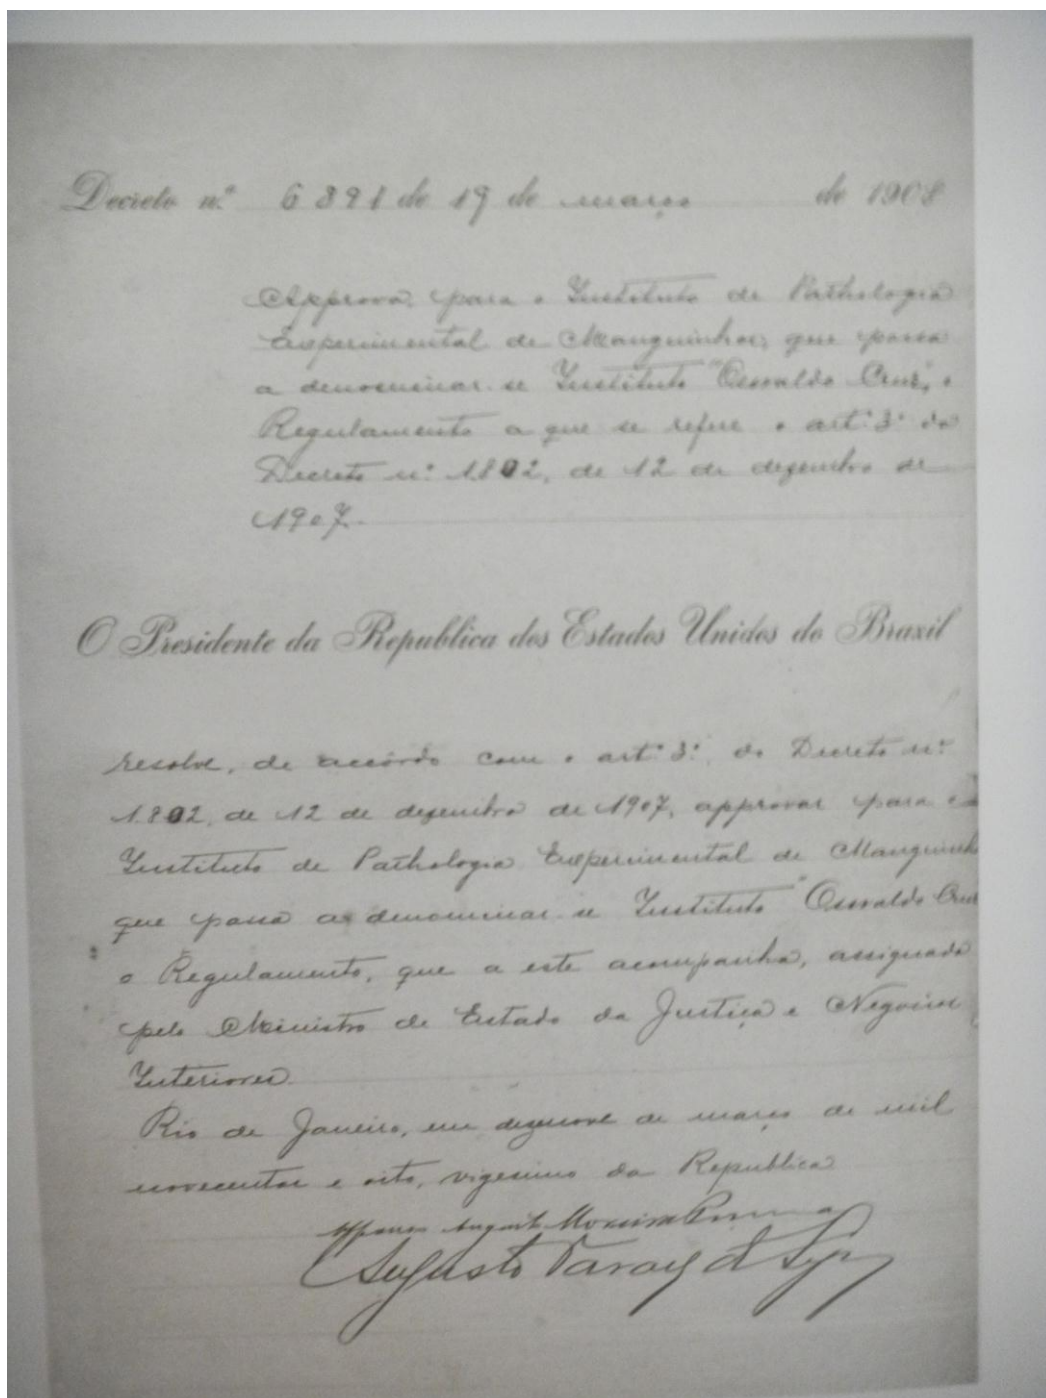 Decreto n.º 6891 de 19 de março de 1908
Approva, para o Instituto de Pathologia
Experimental de Manguinhos, que passa
a denominar-se Instituto "Oswaldo Cruz", o
Regulamento a que se refere o art.º 3.º do
Decreto n.º 1.802, de 12 de dezembro de
1907.
O Presidente da Republica dos Estados Unidos do Brazil
resolve, de accôrdo com o art.º 3.º, do Decreto n.º
1.802, de 12 de dezembro de 1907, approvar para o
Instituto de Pathologia Experimental de Manguinh
que passa a denominar-se Instituto "Oswaldo Cruz
o Regulamento, que a este acompanha, assignado
pelo Ministro de Estado da Justiça e Negocios
Interiores.
Rio de Janeiro, em dezenove de março de mil
novecentos e oito, vigesimo da Republica
Affonso Augusto Moreira Penna
Augusto Tavares de Lyra